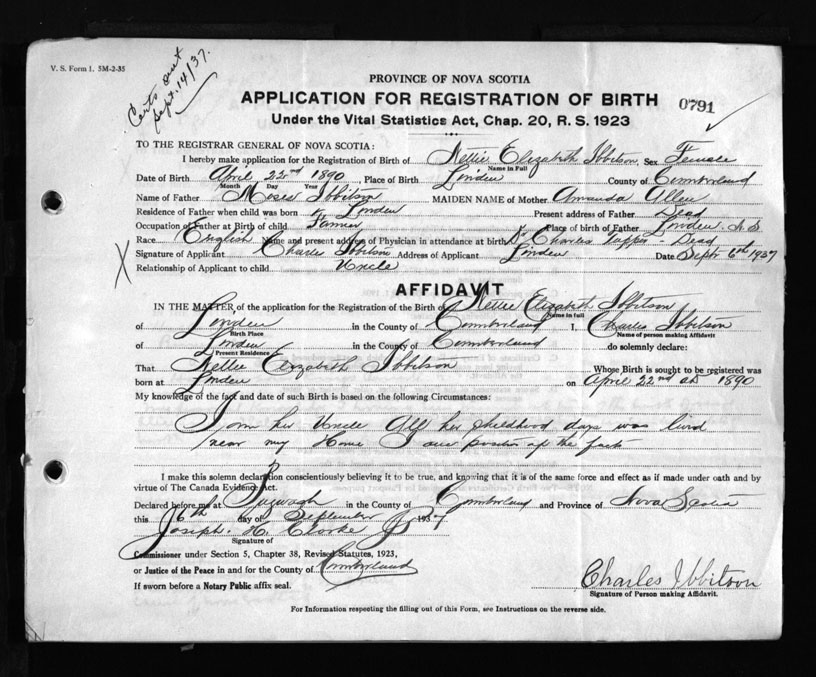 V. S. Form 1. 5M-2-35
Certs out
Sept. 14/37.
PROVINCE OF NOVA SCOTIA
APPLICATION FOR REGISTRATION OF BIRTH 0791
Under the Vital Statistics Act, Chap. 20, R. S. 1923
TO THE REGISTRAR GENERAL OF NOVA SCOTIA:
I hereby make application for the Registration of Birth of Nettie Elizabeth Ibbitson, Sex Female
Name in Full
Date of Birth April 22nd 1890 Place of Birth Linden County of Cumberland
Month Day Year
Name of Father Moses Ibbitson MAIDEN NAME of Mother Amanda Allen
Residence of Father when child was born Linden Present address of Father Dead
Occupation of Father at Birth of child Farmer Place of birth of Father Linden. N. S.
Race English Name and present address of Physician in attendance at birth Dr Charles Tupper - Dead
Signature of Applicant Charles Ibbitson Address of Applicant Linden Date Sept 6th 1937
Relationship of Applicant to child Uncle
X
AFFIDAVIT
IN THE MATTER of the application for the Registration of the Birth of Nettie Elizabeth Ibbitson
Name in full
of Linden in the County of Cumberland I, Charles Ibbitson
Birth Place Name of person making Affidavit
of Linden in the County of Cumberland do solemnly declare:
Present Residence
That Nettie Elizabeth Ibbitson Whose Birth is sought to be registered was
born at Linden on April 22nd AD 1890
My knowledge of the fact and date of such Birth is based on the following Circumstances:
I am her Uncle All her childhood days was livd
near my Home I am positive of the facts
I make this solemn declaration conscientiously believing it to be true, and knowing that it is of the same force and effect as if made under oath and by
virtue of The Canada Evidence Act.
Declared before me at Pugwash in the County of Cumberland and Province of Nova Scotia
this 6th day of September 1937
Joseph. H. Clarke J P
Signature of
Commissioner under Section 5, Chapter 38, Revised Statutes, 1923,
or Justice of the Peace in and for the County of Cumberland
If sworn before a Notary Public affix seal.
Charles Ibbitson
Signature of Person making Affidavit.
For Information respecting the filling out of this Form, see Instructions on the reverse side.